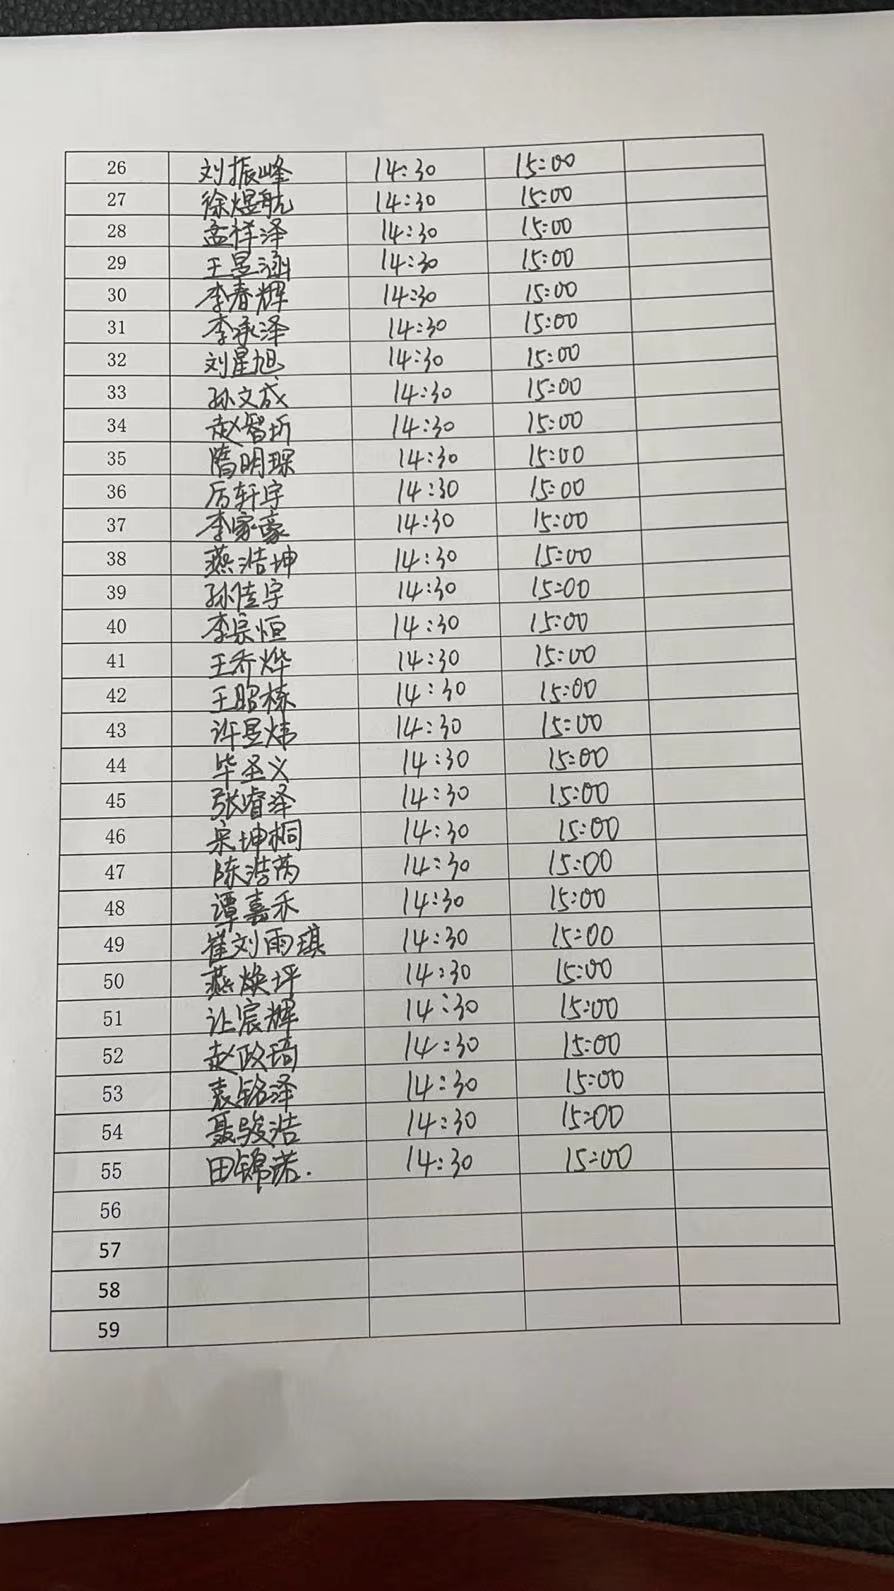 26 刘振峰 14:30 15:00
27 徐煜航 14:30 15:00
28 孟祥泽 14:30 15:00
29 王昱涵 14:30 15:00
30 李春辉 14:30 15:00
31 李承泽 14:30 15:00
32 刘星旭 14:30 15:00
33 孙文成 14:30 15:00
34 赵智圻 14:30 15:00
35 隋明琛 14:30 15:00
36 厉轩宇 14:30 15:00
37 李家豪 14:30 15:00
38 燕浩坤 14:30 15:00
39 孙佳宇 14:30 15:00
40 李宗恒 14:30 15:00
41 王乔烨 14:30 15:00
42 王昭栋 14:30 15:00
43 许昱炜 14:30 15:00
44 毕圣义 14:30 15:00
45 张睿泽 14:30 15:00
46 宋坤桐 14:30 15:00
47 陈浩芮 14:30 15:00
48 谭嘉禾 14:30 15:00
49 崔刘雨琪 14:30 15:00
50 燕焕坪 14:30 15:00
51 让宸辉 14:30 15:00
52 赵政琦 14:30 15:00
53 袁铭泽 14:30 15:00
54 聂骏浩 14:30 15:00
55 田锦诺. 14:30 15:00
56
57
58
59